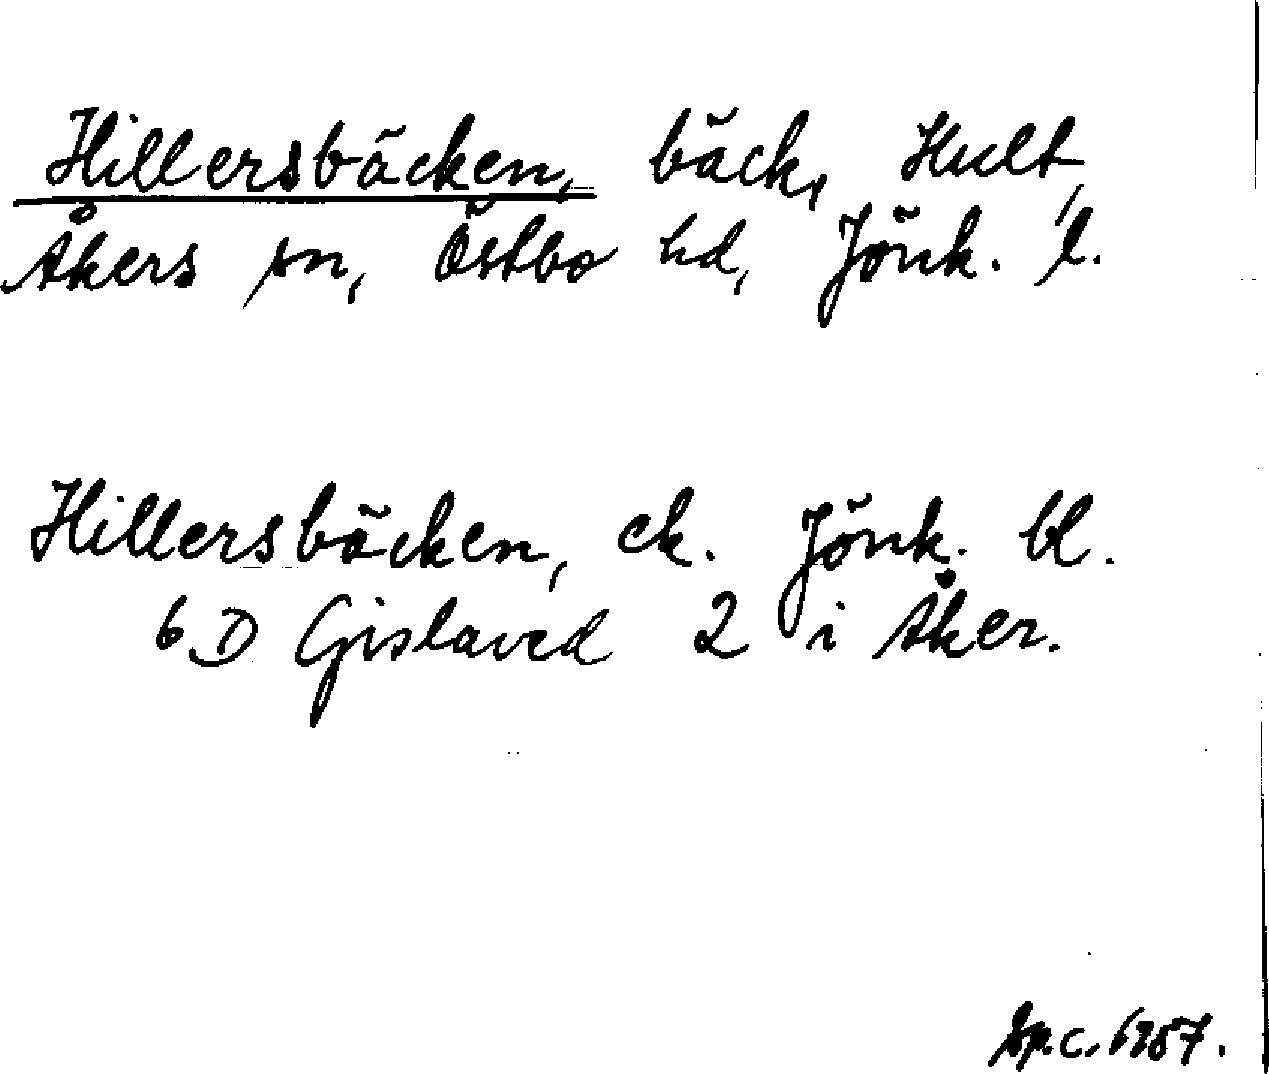 Hillersbäcken, bäck, Hult,
Åkers sn, Östbo hd, Jönk. l.
Hillersbäcken, ek. Jönk. bl.
6 D Gislaved 2 i Åker.